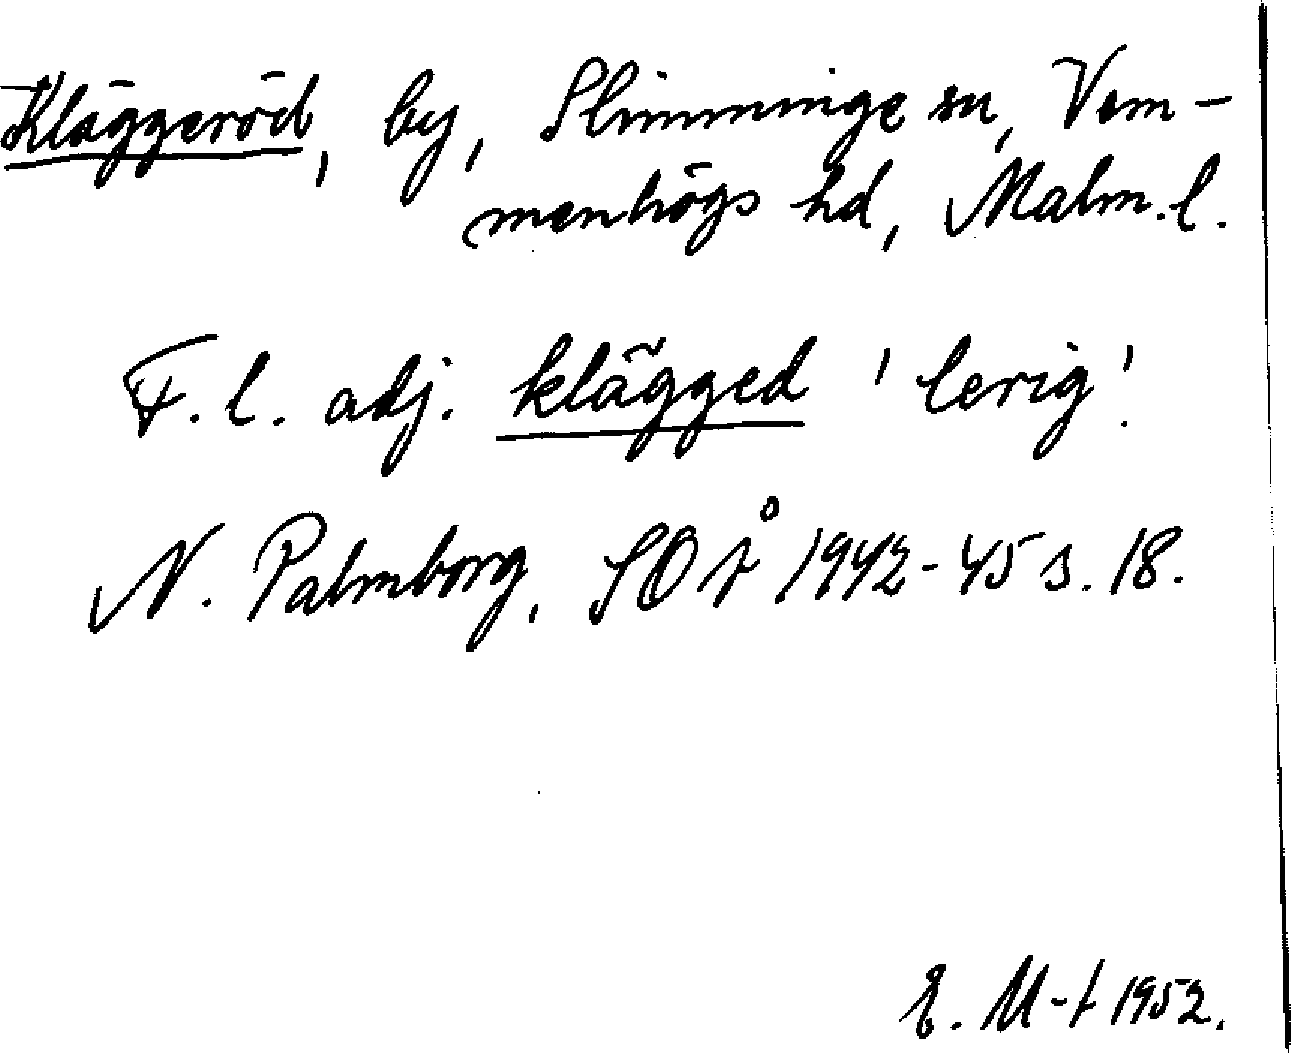 Kläggeröd, by, Slimminge sn, Vem-
menhögs hd, Malm. l.
F. l. adj. klägged 'lerig'.
N. Palmborg, SOÅ 1942-45 s. 18.
E. M-t 1952.